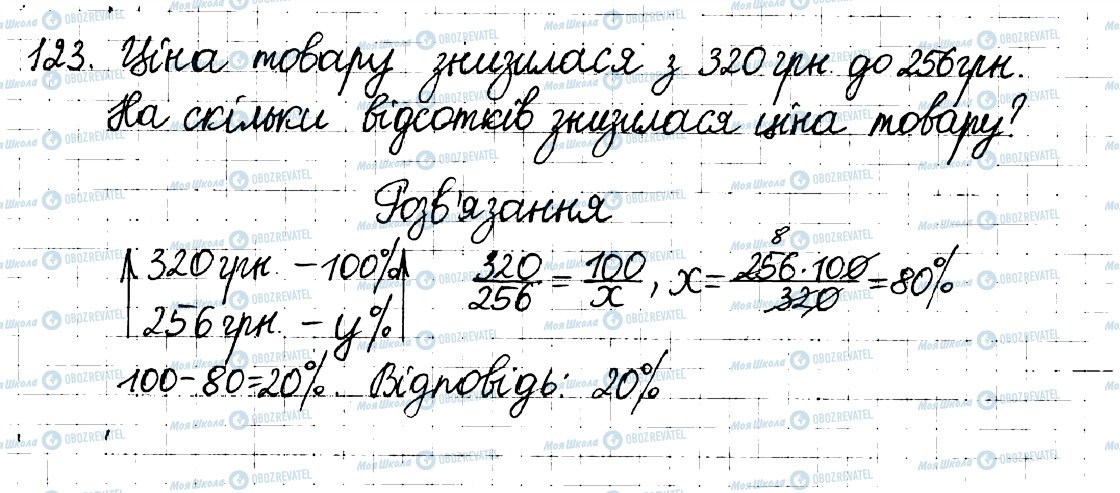 123. Ціна товару знизилася з 320 грн. до 256 грн.
На скільки відсотків знизилася ціна товару?
Розв'язання
320 грн. – 100%
256 грн. – y%
320/256 = 100/x, x = 256·100/320 = 80%
8
100 – 80 = 20%. Відповідь: 20%
Моя Школа OBOZREVATEL